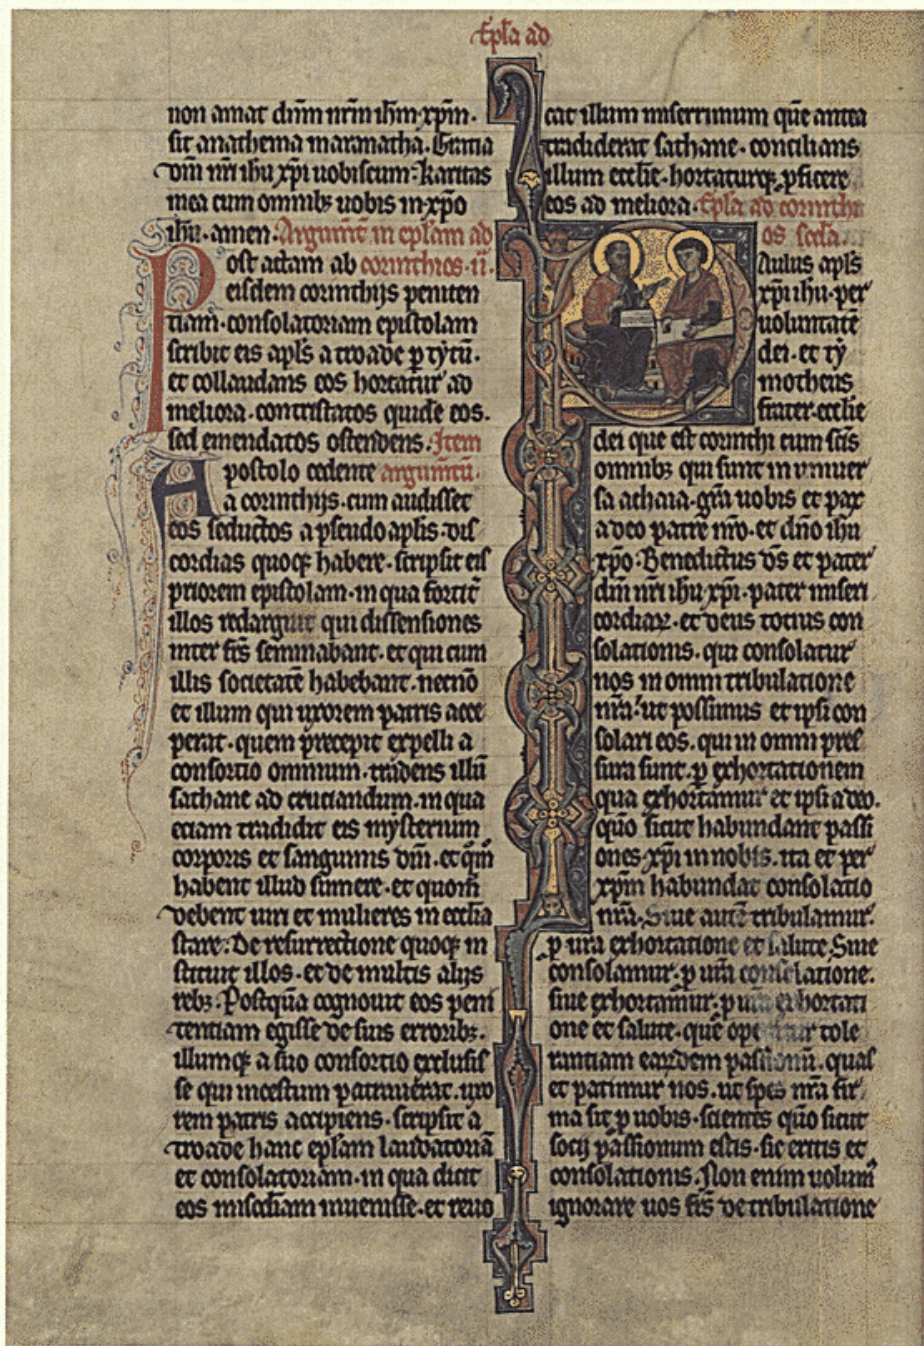 Epl̅a ad
non amat dn̅m nr̅m ih̅m xp̅m.
sit anathema maranatha. Gratia
dn̅i nr̅i ih̅u xp̅i uobiscum. Karitas
mea cum omnibꝫ uobis in xp̅o
ih̅u. amen. Argum̅t in epl̅am ad
corinthios. ii.
Post actam ab
eisdem corinthijs peniten
tiam. consolatoriam epistolam
scribit eis apl̅s a troade ꝑ tytu̅.
et collaudans eos hortatur ad
meliora. contristatos quide̅ eos.
sed emendatos ostendens. Item
argum̅tu̅.
Apostolo cedente
a corinthijs. cum audisset
eos seductos a pseudo apl̅is. dis
cordias quoqꝫ habere. scripsit eis
priorem epistolam. in qua fortit̅
illos redarguit qui dissensiones
inter fr̅s seminabant. et qui cum
illis societate̅ habebant. necno̅
et illum qui uxorem patris acce
perat. quem precepit expelli a
consortio omnium. tradens illu̅
sathane ad cruciandum. in qua
eciam tradidit eis mysterium
corporis et sanguinis dn̅i. et qm̅
habent illud sumere. et quom̅
debent uiri et mulieres in eccl̅ia
stare. de resurrectione quoqꝫ in
stituit illos. et de multis alijs
rebꝫ. Postqua̅ cognouit eos peni
tentiam egisse de suis erroribꝫ.
illumqꝫ a suo consortio exclusis
se qui incestum patrauerat. uxo
rem patris accipiens. scripsit a
troade hanc epl̅am laudatoria̅
et consolatoriam. in qua dicit
eos mis̅cdiam inuenisse. et reuo
cat illum miserrimum que̅ antea
tradiderat sathane. concilians
illum eccl̅ie. hortaturqꝫ ꝓficere
eos ad meliora. Epl̅a ad corinthi
os sc̅da.
Paulus apl̅s
xp̅i ih̅u. per
uoluntate̅
dei. et ty
motheus
frater. eccl̅ie
dei que est corinthi cum sc̅is
omnibꝫ qui sunt in vniuer
sa achaia. gr̅a uobis et pax
a deo patre nr̅o. et dn̅o ih̅u
xp̅o. Benedictus ds̅ et pater
dn̅i nr̅i ih̅u xp̅i. pater miseri
cordiaꝝ. et deus totius con
solationis. qui consolatur
nos in omni tribulatione
nr̅a. ut possimus et ipsi con
solari eos. qui in omni pres
sura sunt. ꝑ exhortationem
qua exhortamur et ipsi a deo.
quo̅ sicut habundant passi
ones xp̅i in nobis. ita et per
xp̅m habundat consolatio
nr̅a. Siue aute̅ tribulamur.
ꝓ ur̅a exhortatione et salute. Siue
consolamur. ꝓ ur̅a consolatione.
siue exhortamur. ꝓ ur̅a exhortati
one et salute. que̅ operatur tole
rantiam eaꝝdem passionu̅. quas
et patimur nos. ut spes nr̅a fir
ma sit ꝓ uobis. scientes quo̅ sicut
socij passionum estis. sic eritis et
consolationis. Non enim uolum̅
ignorare uos fr̅s de tribulatione